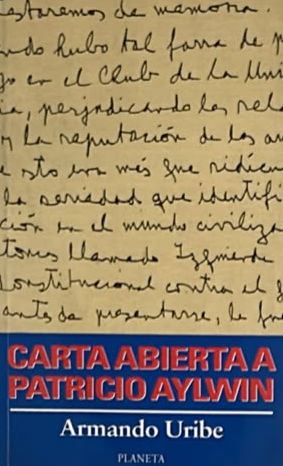 estaremos de memoria.
ndo hubo tal farra de p
go en el Club de la Uni
ia, perjudicando las rela
y la reputación de las au
e esto era más que ridícu
la seriedad que identifi
ción en el mundo civiliza
tonces llamado Izquierda
Constitucional contra el g
antes de presentarse, le fue
CARTA ABIERTA A
PATRICIO AYLWIN
Armando Uribe
PLANETA